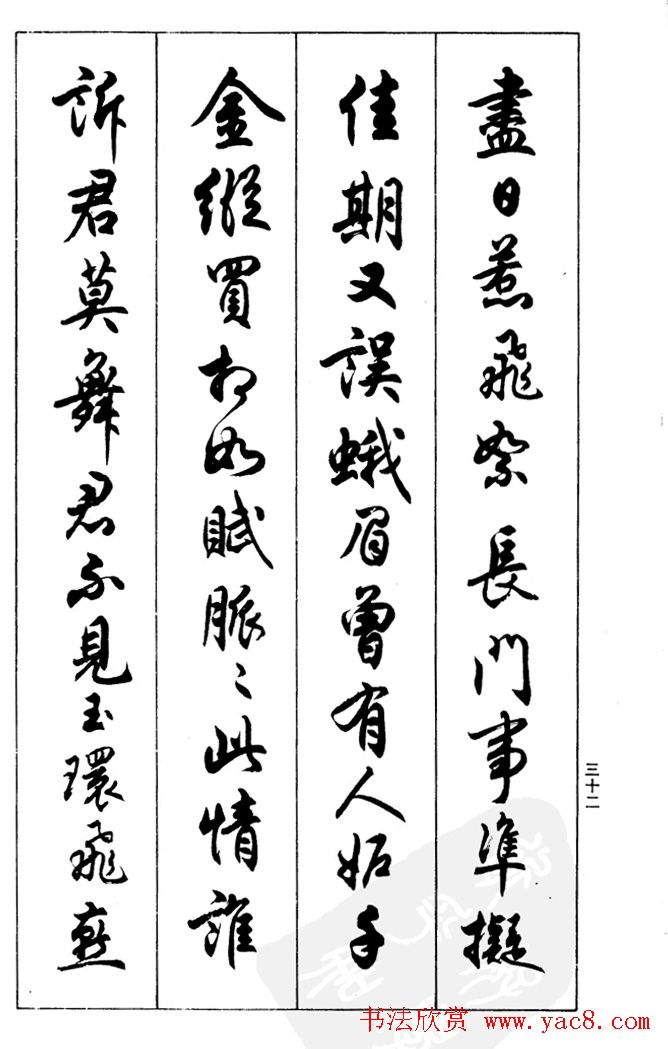 盡日惹飛絮長門事準擬
佳期又誤蛾眉曾有人妬千
金縱買相如賦脈〻此情誰
訴君莫舞君不見玉環飛燕
三十二
书法欣赏 www.yac8.com